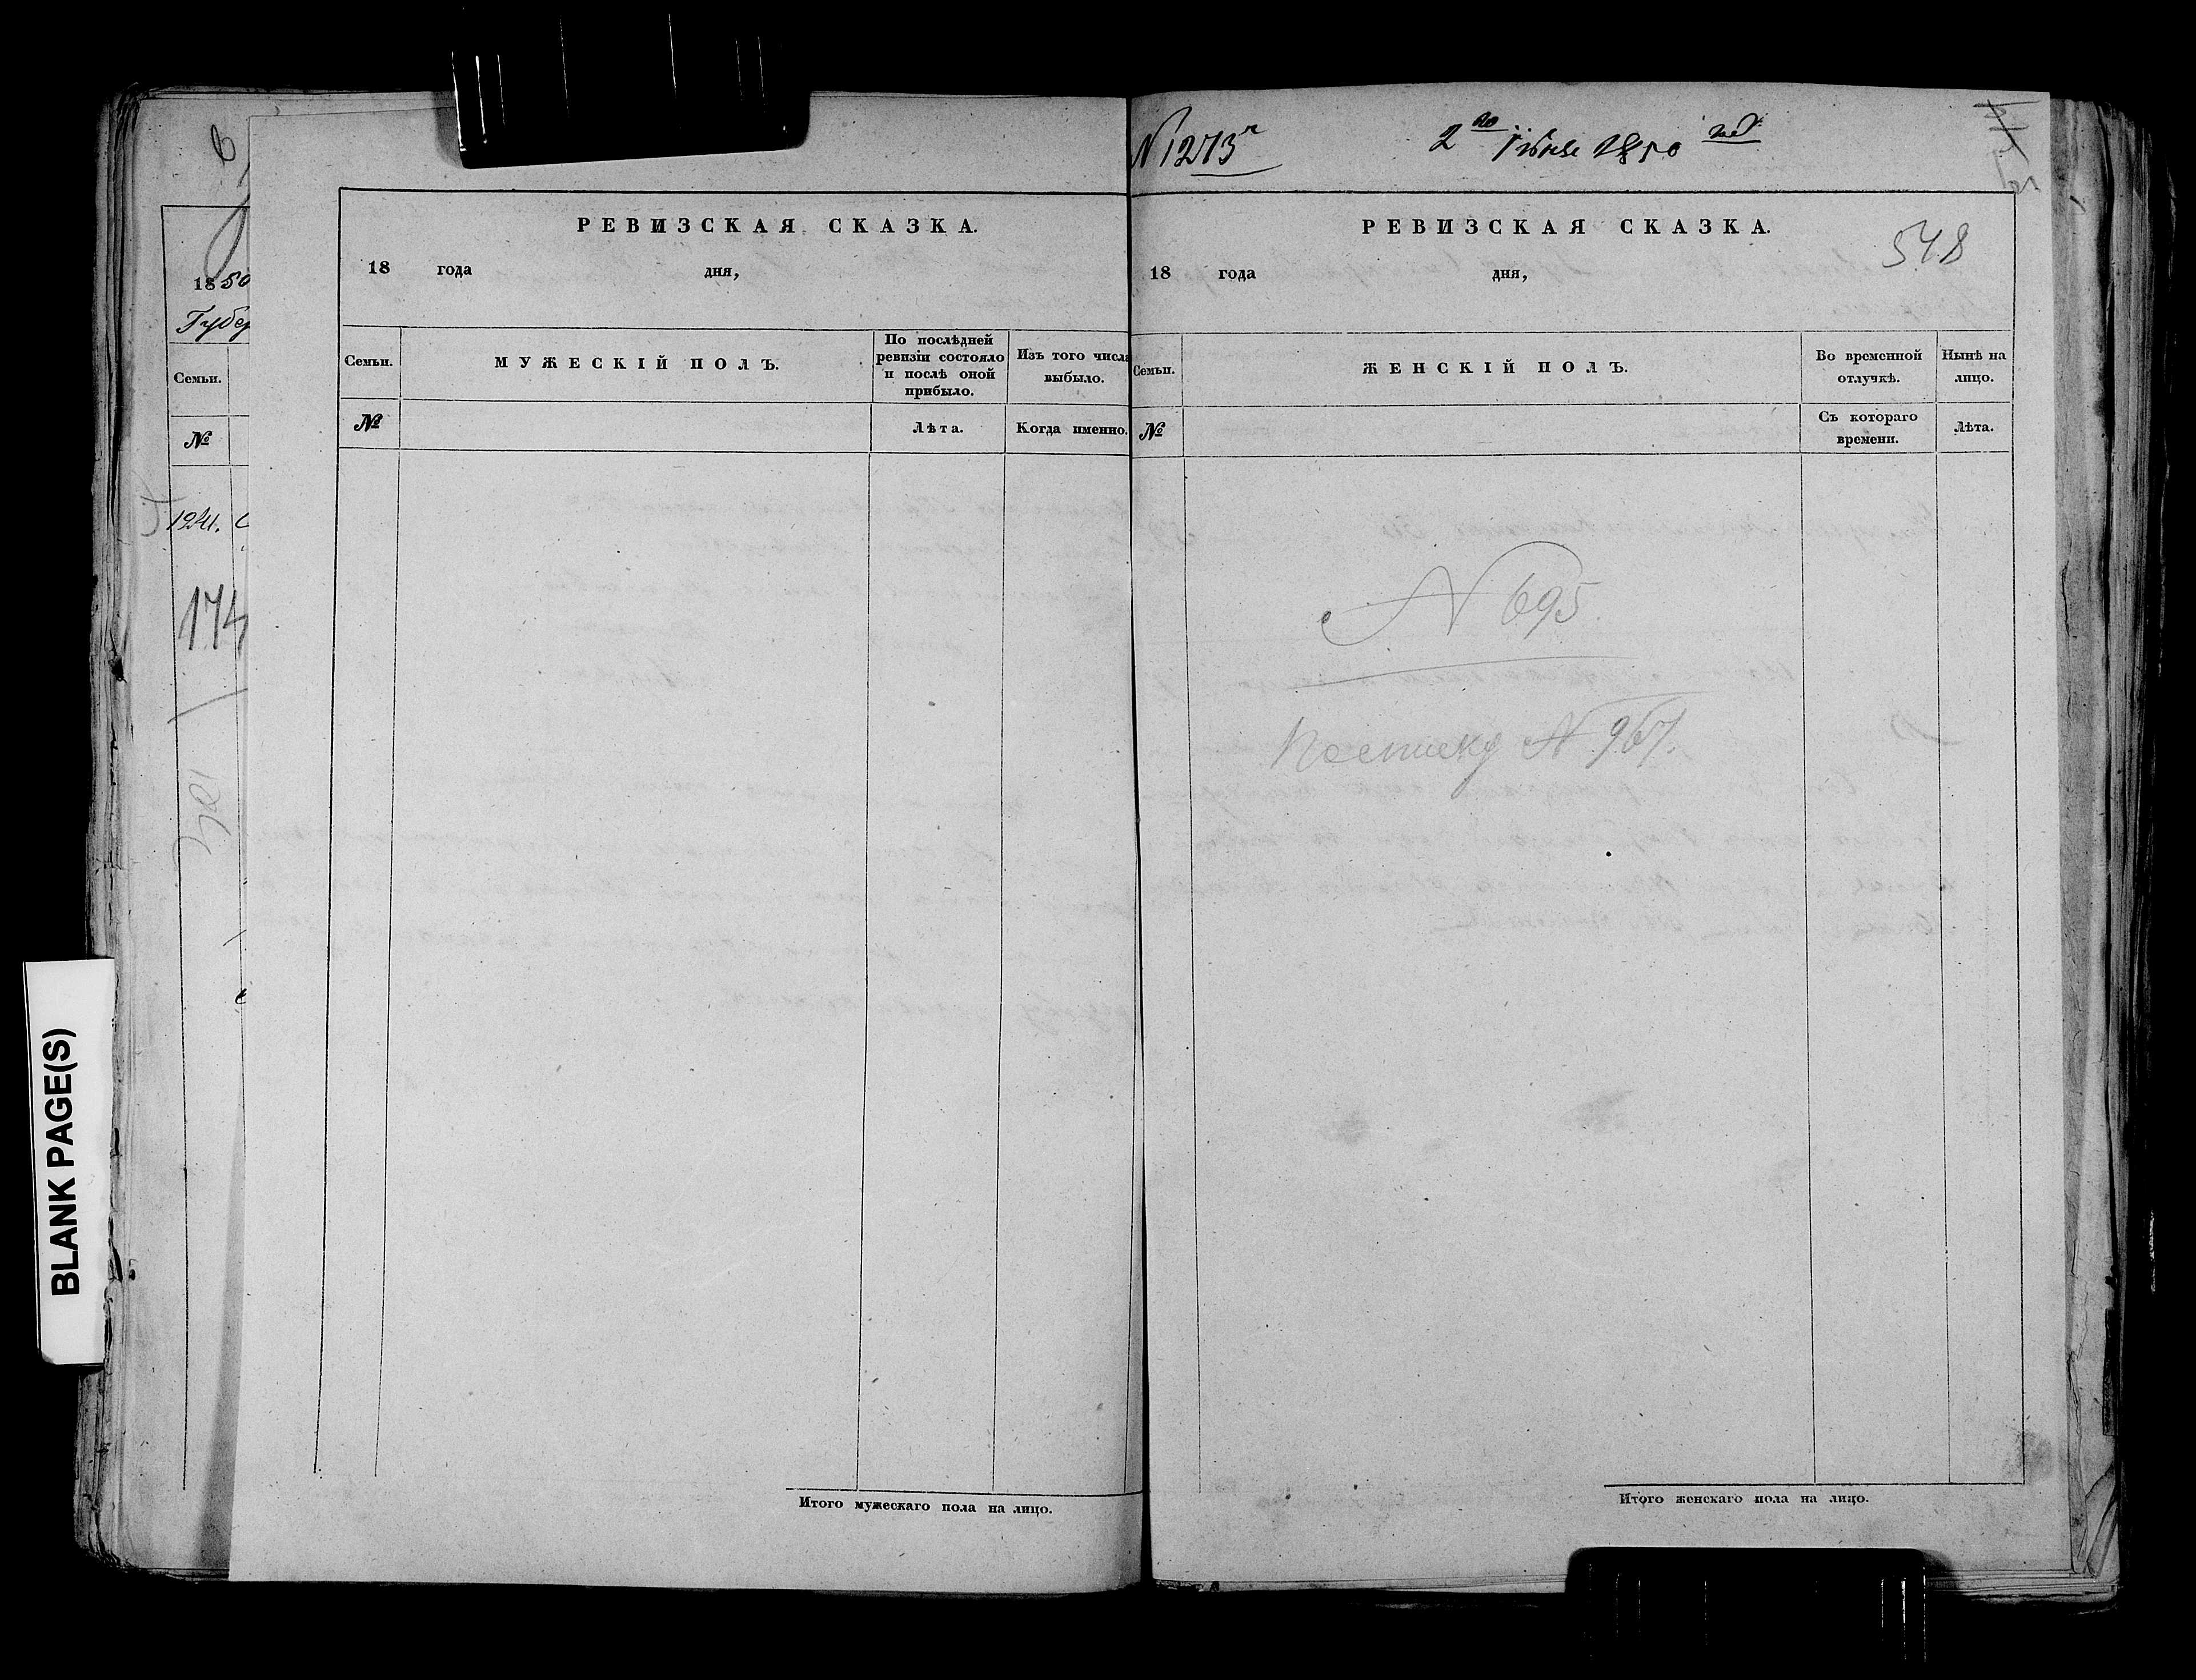 18 50
Губер
Семьи.
№
1241.
174
BLANK PAGE(S)
РЕВИЗСКАЯ СКАЗКА.
18 года дня,
Семьи.
МУЖЕСКІЙ ПОЛЪ.
По послѣдней
ревизіи состояло
и послѣ оной
прибыло.
Изъ того числа
выбыло.
№
Лѣта.
Когда именно.
Итого мужескаго пола на лицо.
№ 1273
2го Іюня 1850 года
РЕВИЗСКАЯ СКАЗКА.
548
18 года дня,
Семьи.
ЖЕНСКІЙ ПОЛЪ.
Во временной
отлучкѣ.
Нынѣ на
лицо.
№
Съ котораго
времени.
Лѣта.
№ 695.
№ 967.
Итого женскаго пола на лицо.